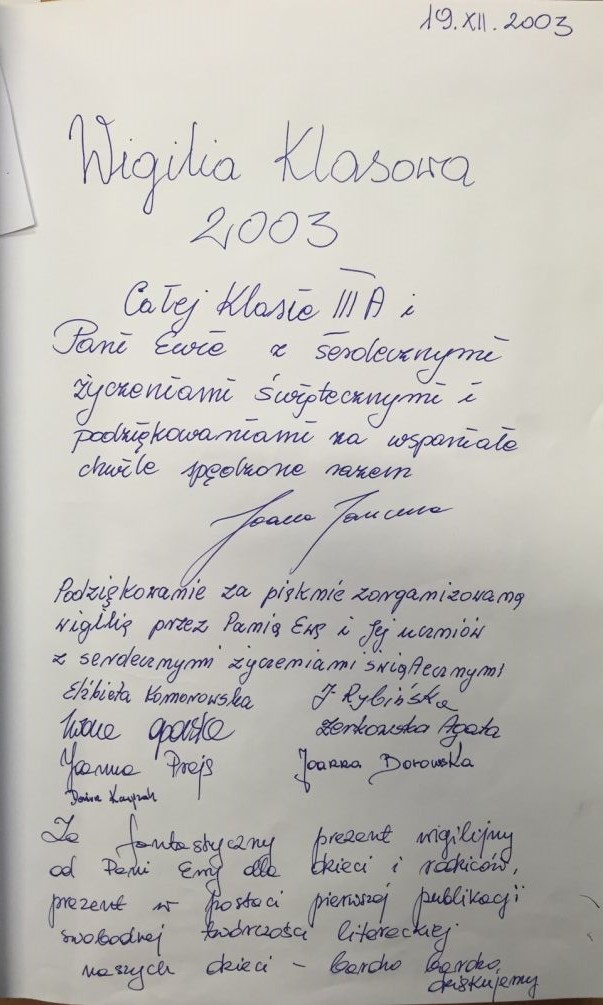 19.XII.2003
Wigilia Klasowa
2003
Całej Klasie III A i
Pani Ewie z serdecznymi
życzeniami świątecznymi i
podziękowaniami za wspaniałe
chwile spędzone razem
Joanna
Podziękowanie za pięknie zorganizowaną
wigilię przez Panią Ewę i Jej uczniów
z serdecznymi życzeniami świątecznymi
Elżbieta Komorowska J. Rybińska
Iwona Zerkowska Agata
Joanna Prejs Joanna Borowska
Za fantastyczny prezent wigilijny
od Pani Ewy dla dzieci i rodziców,
prezent w postaci pierwszej publikacji
swobodnej twórczości literackiej
naszych dzieci – bardzo bardzo
dziękujemy